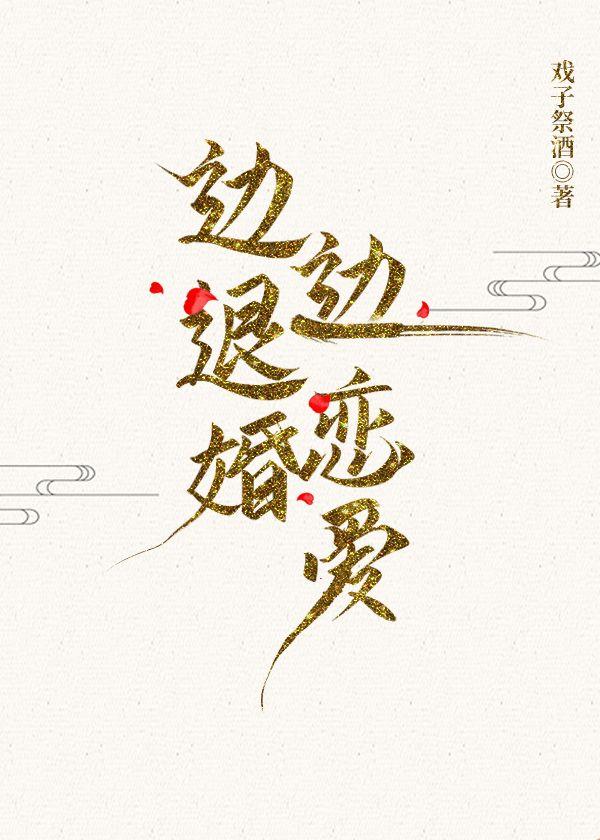 边退婚
边恋爱
戏子祭酒◎著